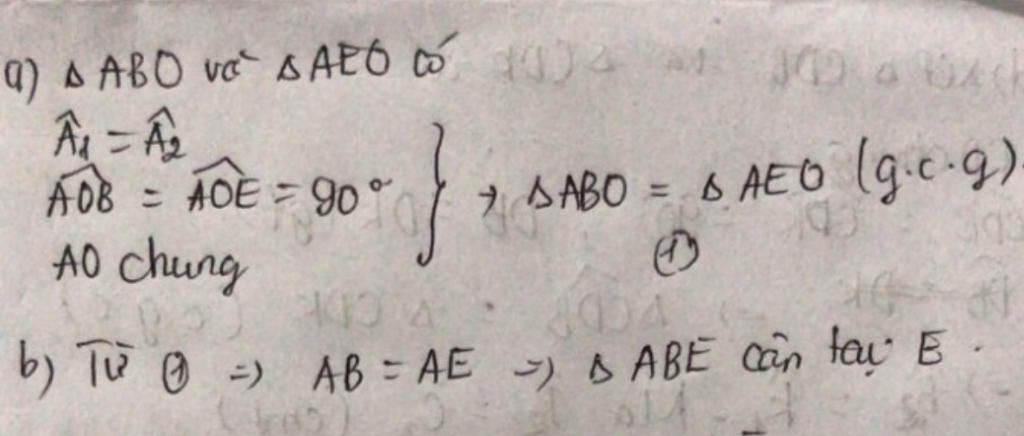 a) Δ ABO và Δ AEO có
Â1 = Â2
AOB = AOE = 90°
AO chung
→ Δ ABO = Δ AEO (g.c.g).
①
b) Từ ① => AB = AE => Δ ABE cân tại E.